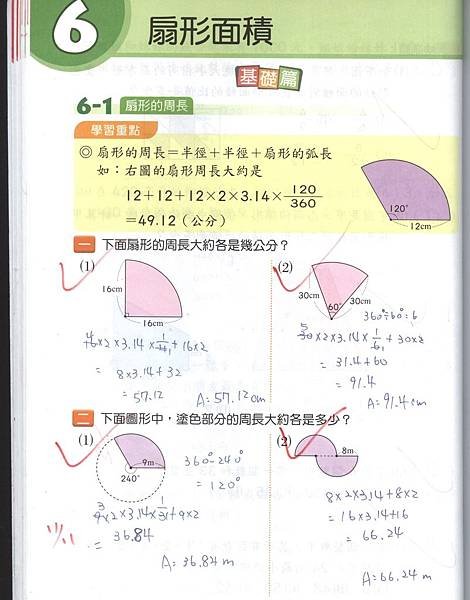 6 扇形面積
基礎篇
6-1 扇形的周長
學習重點
◎ 扇形的周長=半徑+半徑+扇形的弧長
如：右圖的扇形周長大約是
12+12+12×2×3.14×120/360
=49.12（公分）
120°
12cm
一 下面扇形的周長大約各是幾公分？
(1)
16cm
16cm
= 8×3.14+32
= 57.12
A=57.12cm
(2)
30cm
30cm
60°
360÷60=6
= 31.4+60
= 91.4
A=91.4cm
二 下面圖形中，塗色部分的周長大約各是多少？
(1)
9m
240°
360°-240°
= 120°
= 36.84
A=36.84m
(2)
8m
8×2×3.14+8×2
= 16×3.14+16
= 66.24
A=66.24m